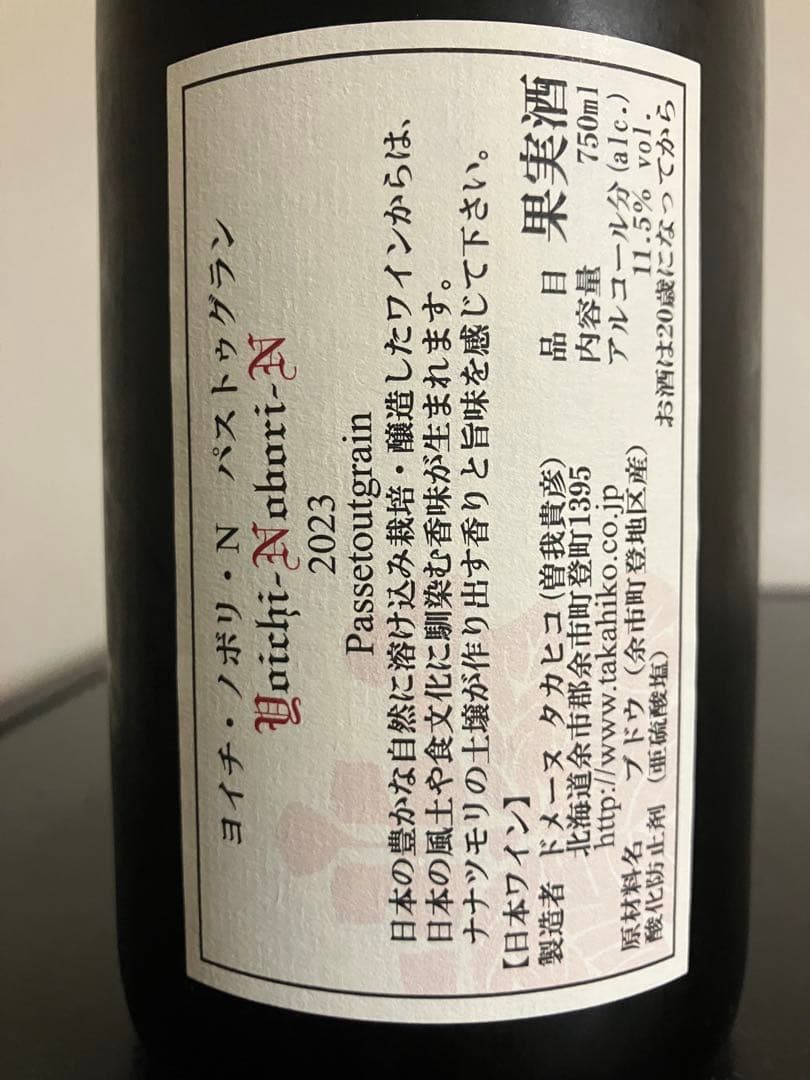 ヨイチ・ノボリ・N パストゥグラン
Yoichi-Nobori-N
2023
Passetoutgrain
日本の豊かな自然に溶け込み栽培・醸造したワインからは、
日本の風土や食文化に馴染む香味が生まれます。
ナナツモリの土壌が作り出す香りと旨味を感じて下さい。
【日本ワイン】
製造者 ドメーヌ タカヒコ(曽我貴彦)
北海道余市郡余市町登町1395
http://www.takahiko.co.jp
原材料名 ブドウ（余市町登地区産）
酸化防止剤（亜硫酸塩）
品目 果実酒
内容量 750ml
アルコール分(alc.)
11.5% vol.
お酒は20歳になってから